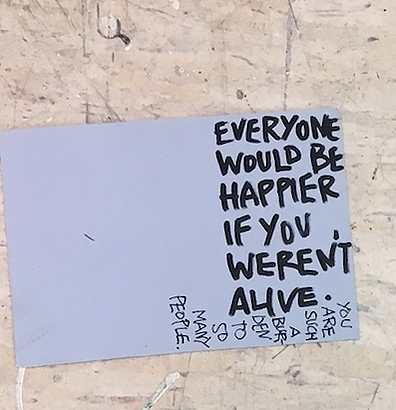 EVERYONE
WOULD BE
HAPPIER
IF YOU
WEREN'T
ALIVE.
YOU
ARE
SUCH
A
BUR-
DEN
TO
SO
MANY
PEOPLE.